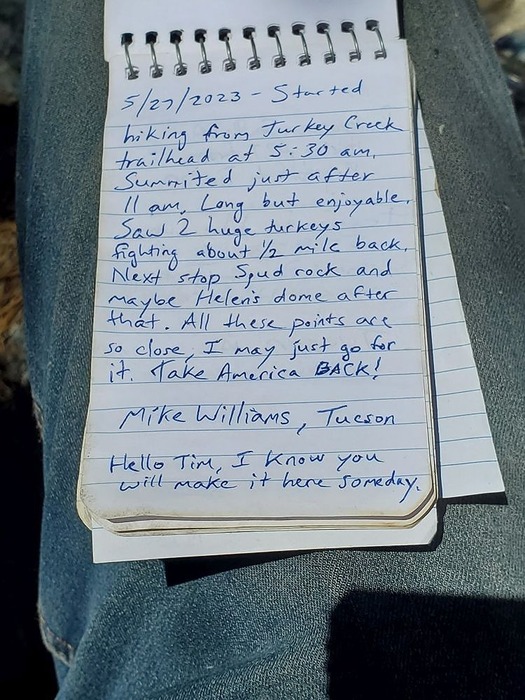 5/27/2023 - Started
hiking from Turkey Creek
trailhead at 5:30 am.
Summited just after
11 am. Long but enjoyable.
Saw 2 huge turkeys
fighting about 1/2 mile back.
Next stop Spud rock and
maybe Helen's dome after
that. All these points are
so close, I may just go for
it. Take America BACK!
Mike Williams, Tucson
Hello Tim, I know you
will make it here someday.